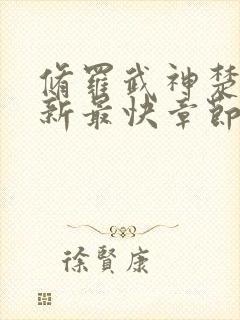 脩羅武神楚
新最快章節
徐賢康